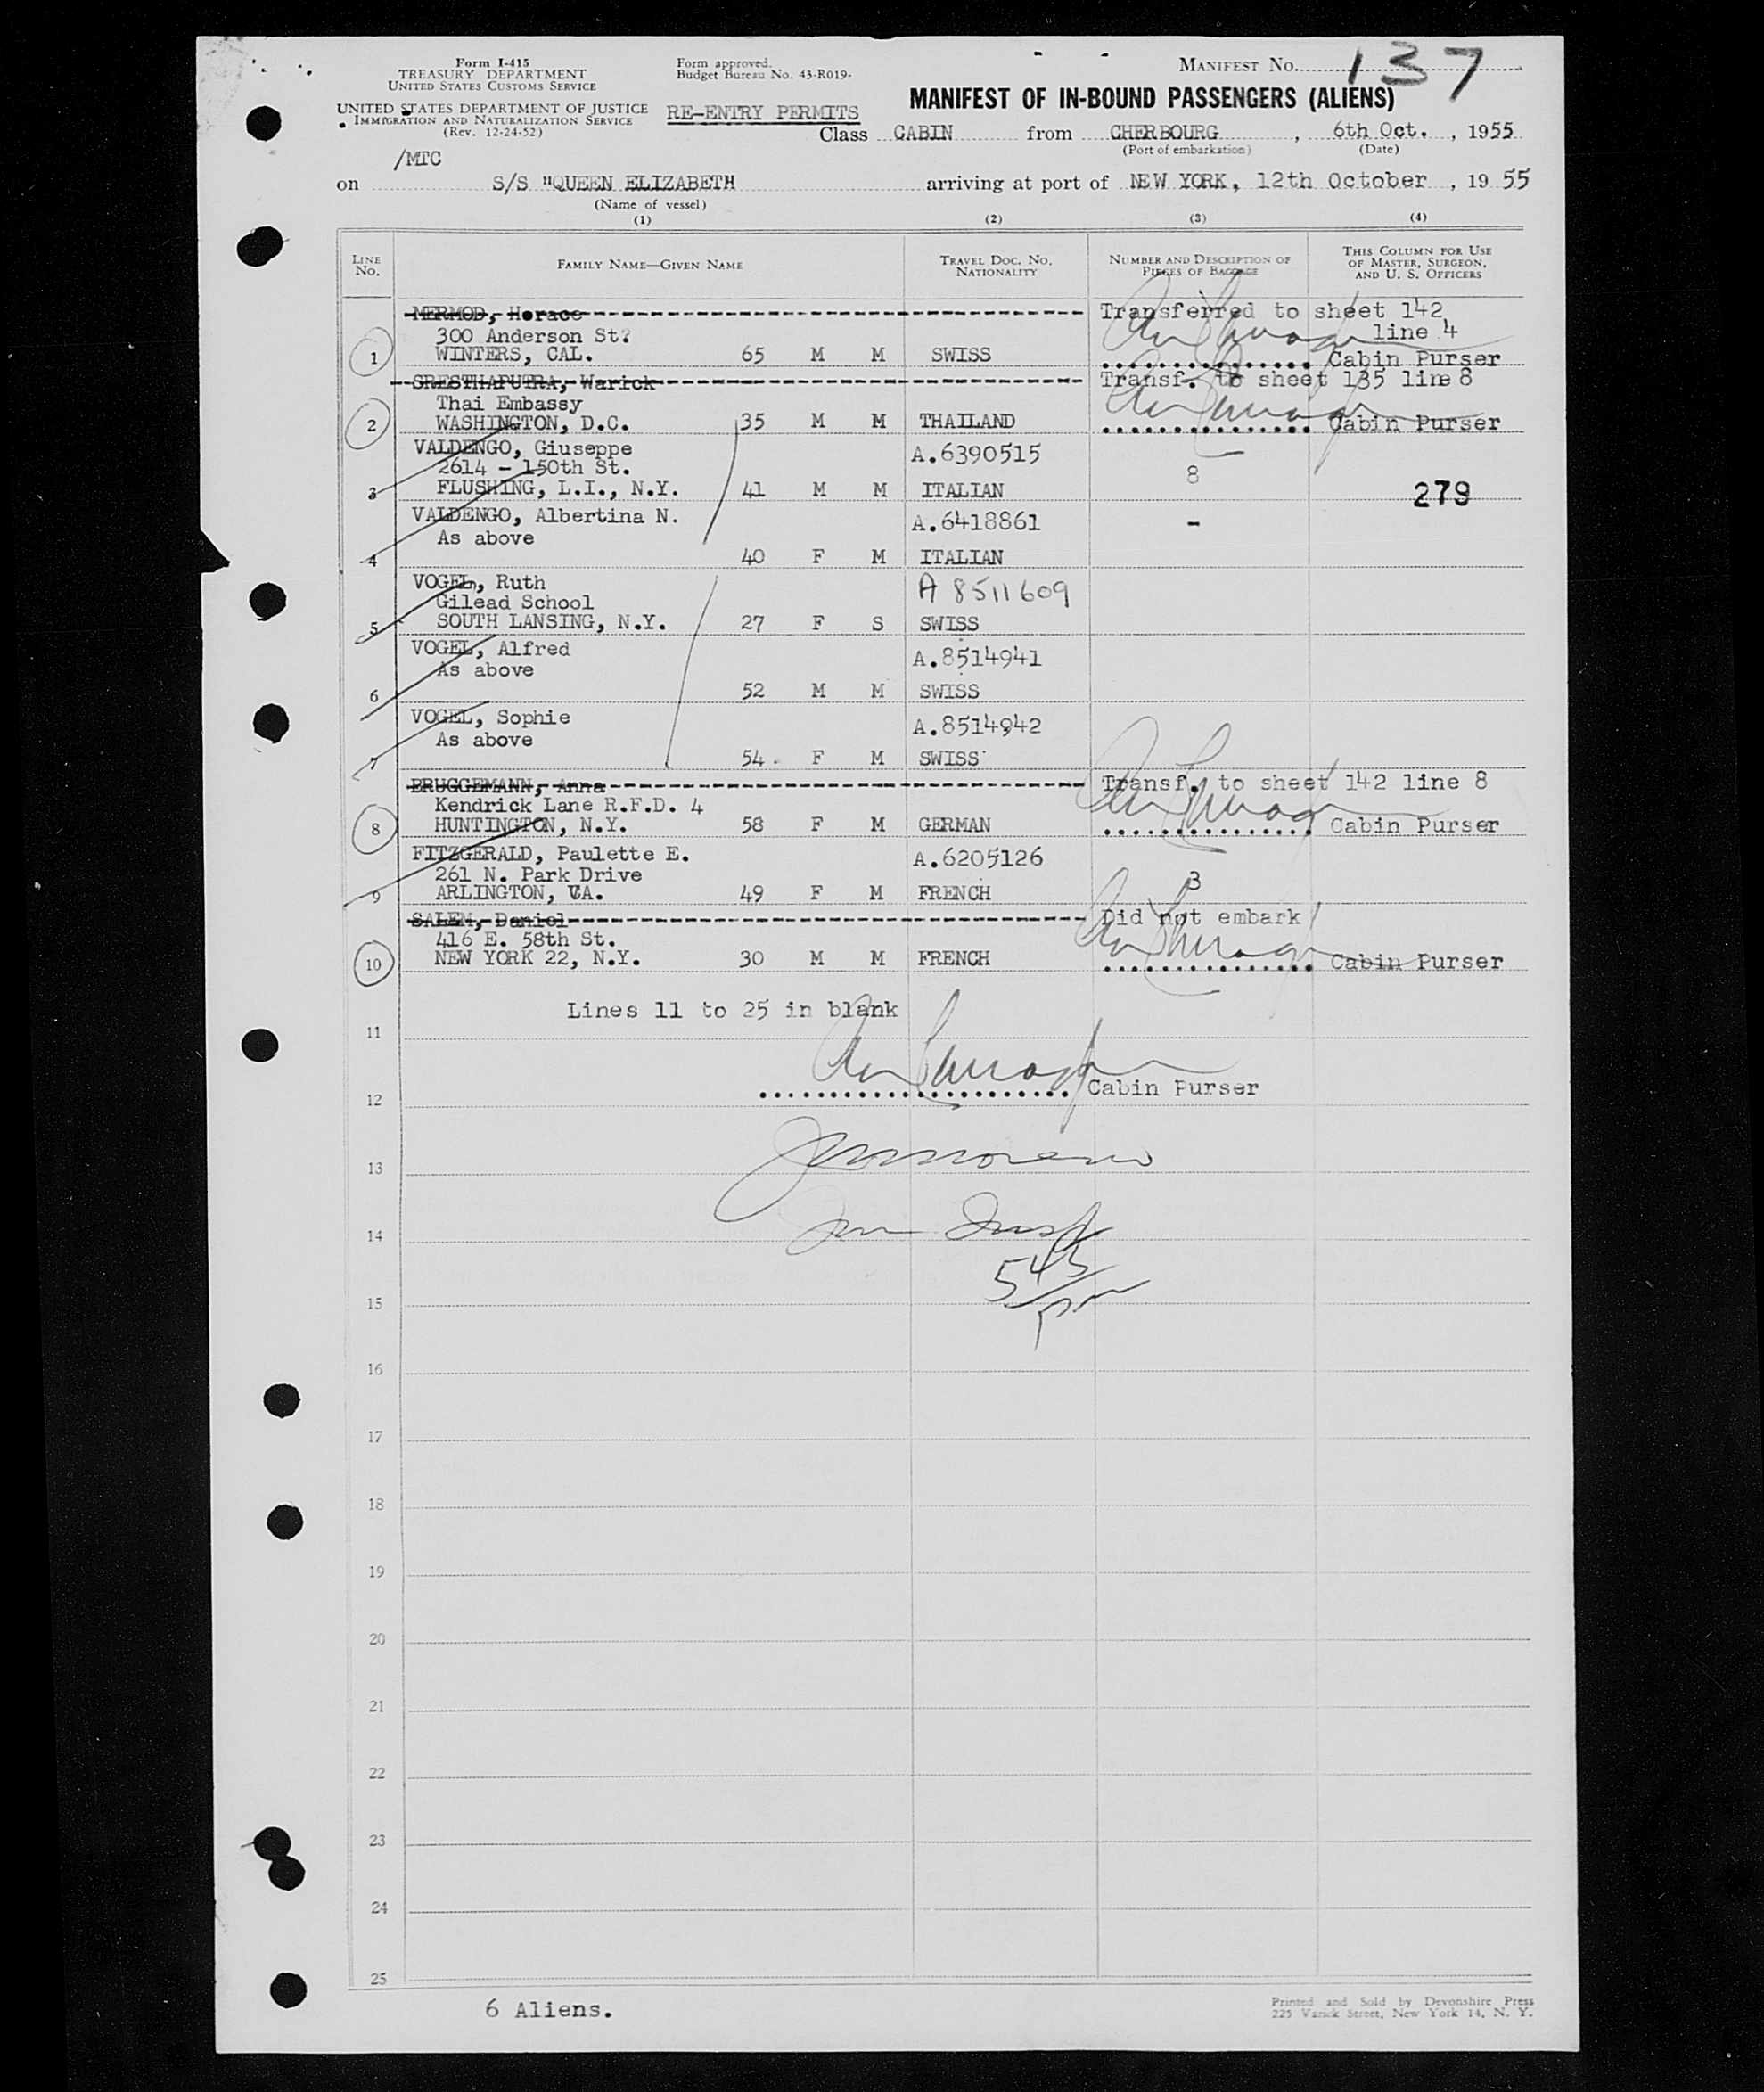 Form I-415
TREASURY DEPARTMENT
UNITED STATES CUSTOMS SERVICE
UNITED STATES DEPARTMENT OF JUSTICE
IMMIGRATION AND NATURALIZATION SERVICE
(Rev. 12-24-52)
Form approved.
Budget Bureau No. 43-R019-
MANIFEST NO. 137
MANIFEST OF IN-BOUND PASSENGERS (ALIENS)
RE-ENTRY PERMITS
Class CABIN from CHERBOURG, 6th Oct., 1955
(Port of embarkation) (Date)
/MTC
on S/S "QUEEN ELIZABETH arriving at port of NEW YORK, 12th October, 19 55
(Name of vessel)
(1) (2) (3) (4)
LINE NO. FAMILY NAME—GIVEN NAME TRAVEL DOC. NO. NATIONALITY NUMBER AND DESCRIPTION OF PIECES OF BAGGAGE THIS COLUMN FOR USE OF MASTER, SURGEON, AND U. S. OFFICERS
MERMOD, Horace Transferred to sheet 142
300 Anderson St. line 4
1 WINTERS, CAL. 65 M M SWISS Cabin Purser
SRESTHAPUTRA, Warick Transf. to sheet 135 line 8
Thai Embassy
2 WASHINGTON, D.C. 35 M M THAILAND Cabin Purser
VALDENGO, Giuseppe A.6390515
2614 - 150th St. 8
3 FLUSHING, L.I., N.Y. 41 M M ITALIAN 279
VALDENGO, Albertina N. A.6418861 -
As above
4 40 F M ITALIAN
VOGEL, Ruth A 8511609
Gilead School
5 SOUTH LANSING, N.Y. 27 F S SWISS
VOGEL, Alfred A.8514941
As above
6 52 M M SWISS
VOGEL, Sophie A.8514942
As above
7 54 F M SWISS
BRUGGEMANN, Anna Transf. to sheet 142 line 8
Kendrick Lane R.F.D. 4
8 HUNTINGTON, N.Y. 58 F M GERMAN Cabin Purser
FITZGERALD, Paulette E. A.6205126
261 N. Park Drive 3
9 ARLINGTON, VA. 49 F M FRENCH
SALEM, Daniel Did not embark
416 E. 58th St.
10 NEW YORK 22, N.Y. 30 M M FRENCH Cabin Purser
Lines 11 to 25 in blank
11
Cabin Purser
12
13
14
545
pm
15
16
17
18
19
20
21
22
23
24
25
6 Aliens.
Printed and Sold by Devonshire Press
225 Varick Street, New York 14, N. Y.